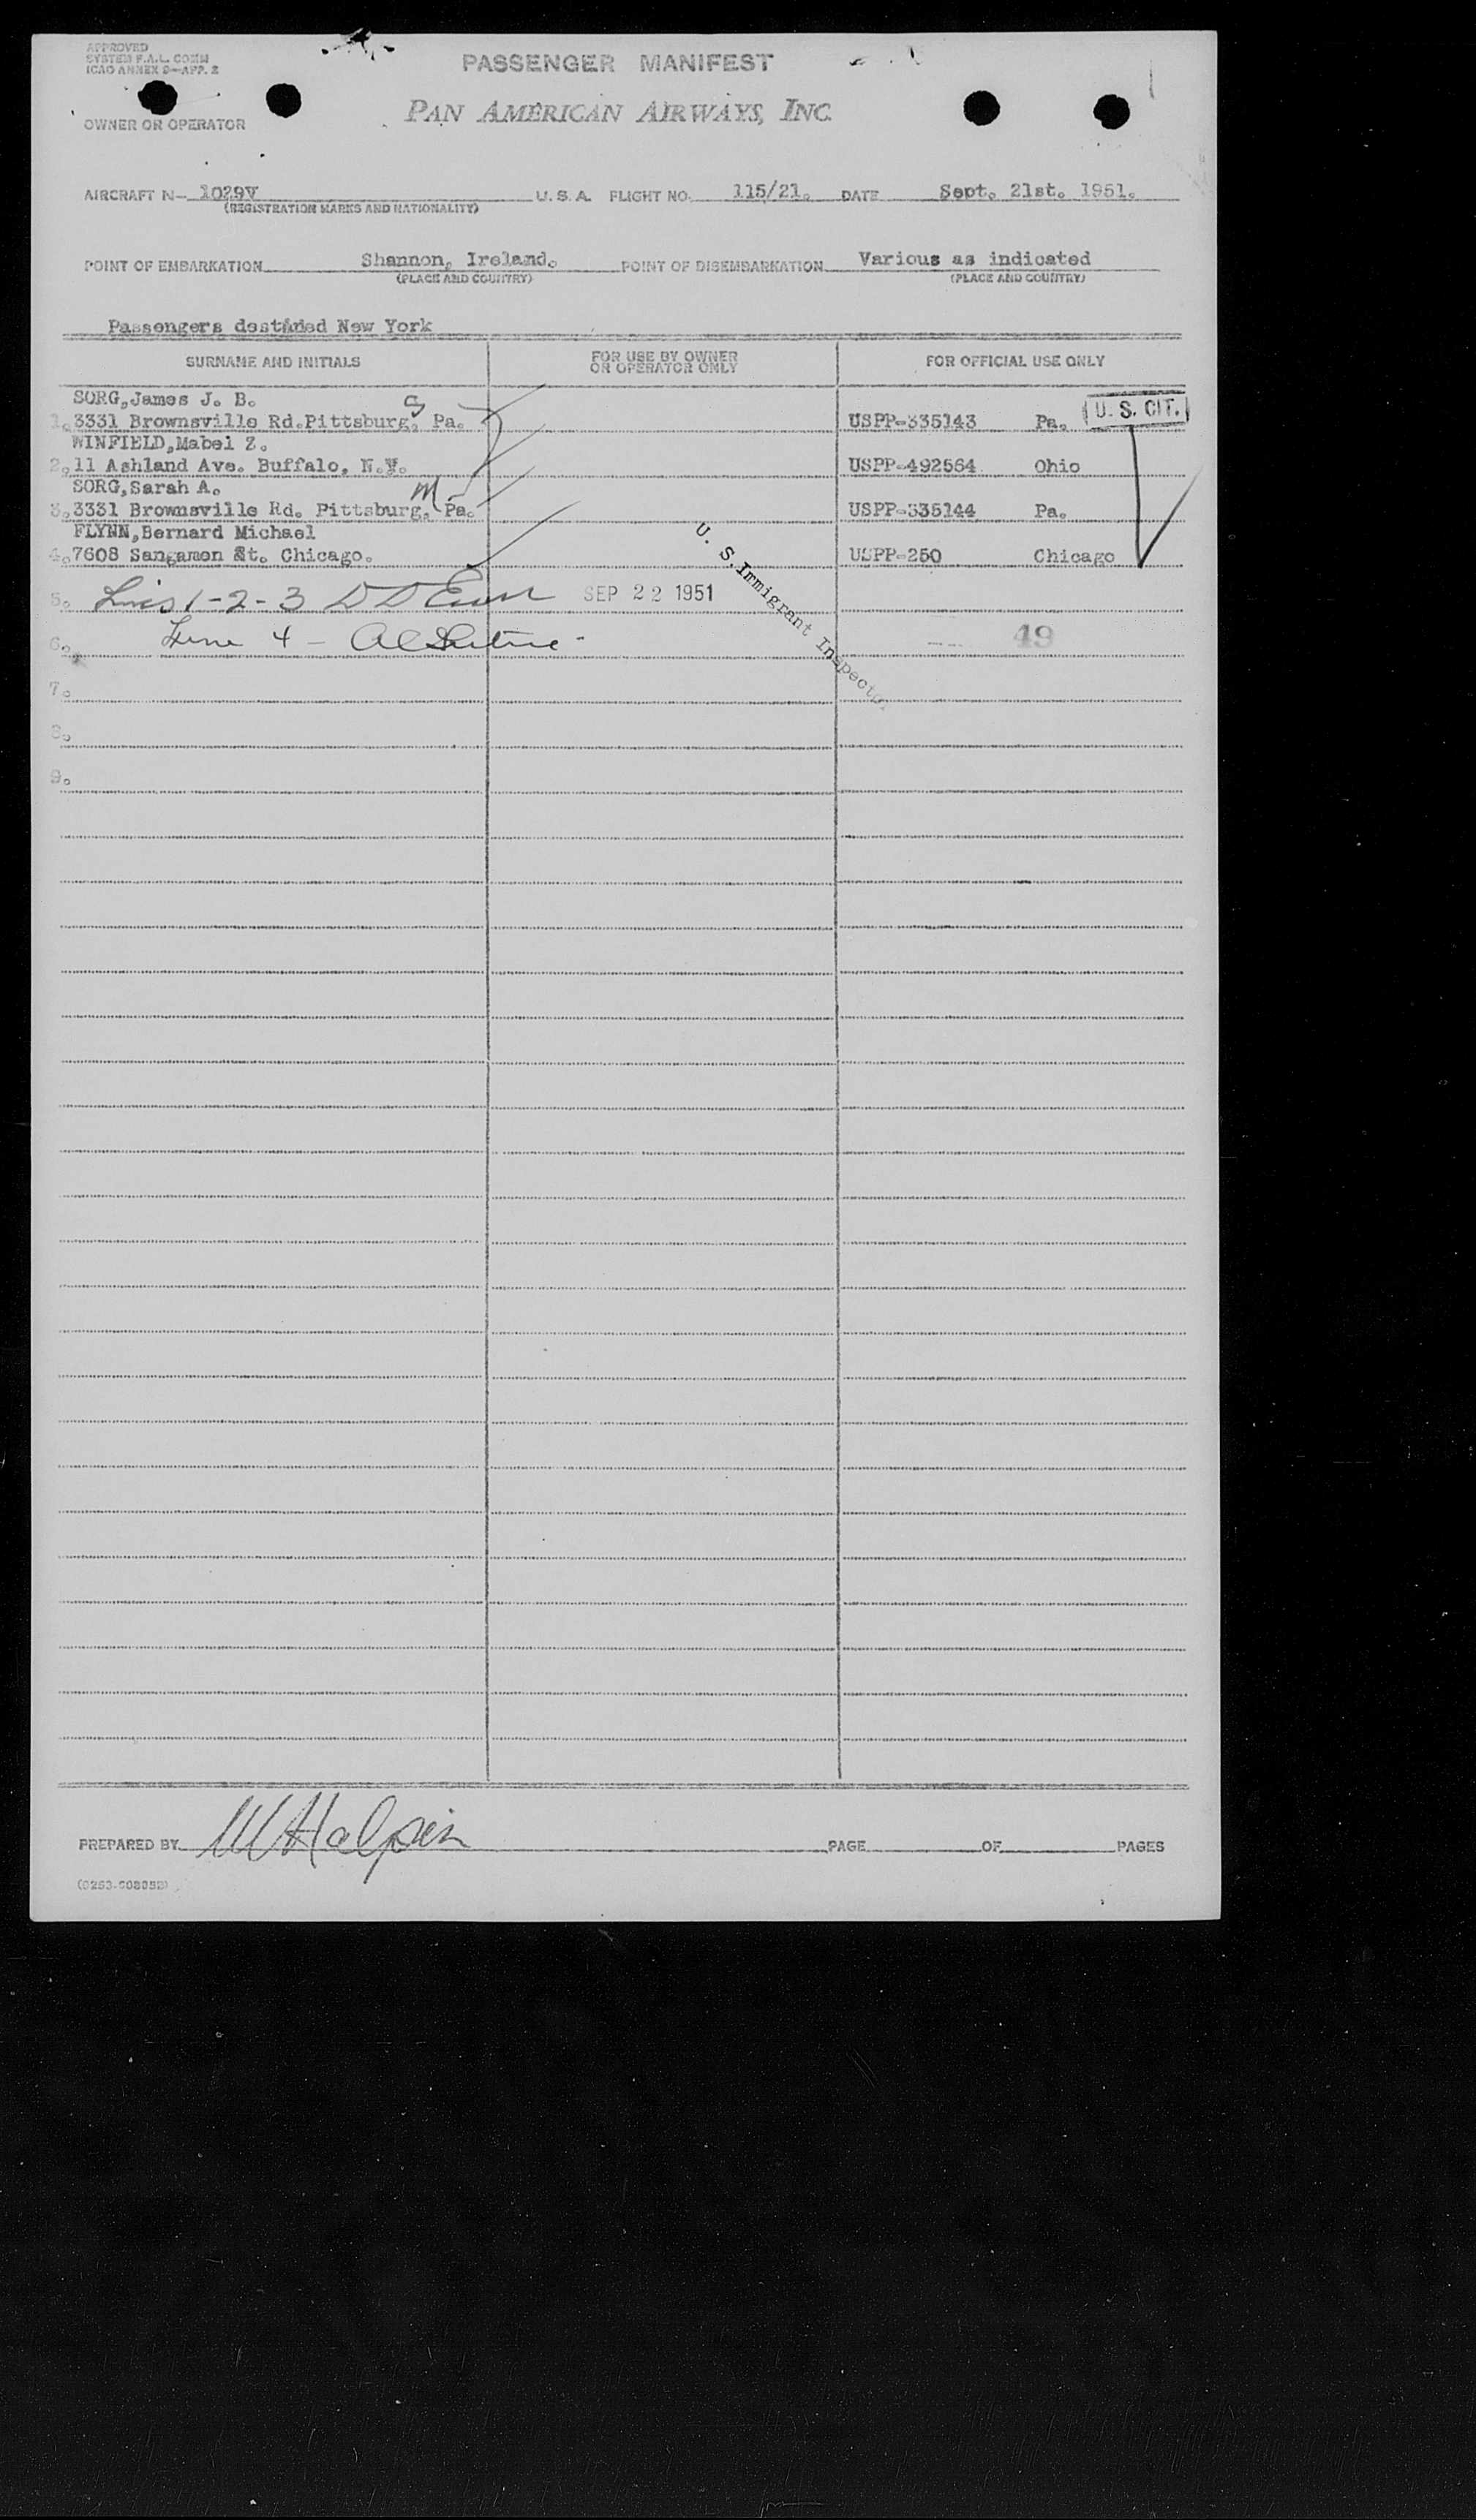 APPROVED
SYSTEM F.A.L. COMM
ICAO ANNEX 9—APP. 2
PASSENGER MANIFEST
OWNER OR OPERATOR
PAN AMERICAN AIRWAYS, INC.
AIRCRAFT N- 1029V U. S. A. FLIGHT NO. 115/21. DATE Sept. 21st. 1951.
(REGISTRATION MARKS AND NATIONALITY)
POINT OF EMBARKATION Shannon, Ireland. POINT OF DISEMBARKATION Various as indicated
(PLACE AND COUNTRY) (PLACE AND COUNTRY)
Passengers destined New York
SURNAME AND INITIALS FOR USE BY OWNER OR OPERATOR ONLY FOR OFFICIAL USE ONLY
SORG,James J. B. S U. S. CIT.
1. 3331 Brownsville Rd.Pittsburg, Pa. USPP-335143 Pa.
WINFIELD,Mabel Z.
2. 11 Ashland Ave. Buffalo, N.Y. USPP-492564 Ohio
SORG,Sarah A. M
3. 3331 Brownsville Rd. Pittsburg, Pa. USPP-335144 Pa.
FLYNN,Bernard Michael
4. 7608 Sangamon St. Chicago. USPP-250 Chicago
5. Lines 1-2-3 SEP 22 1951
U. S. Immigrant Inspector
6. Line 4 - 49
7.
8.
9.
PREPARED BY W Halpin PAGE OF PAGES